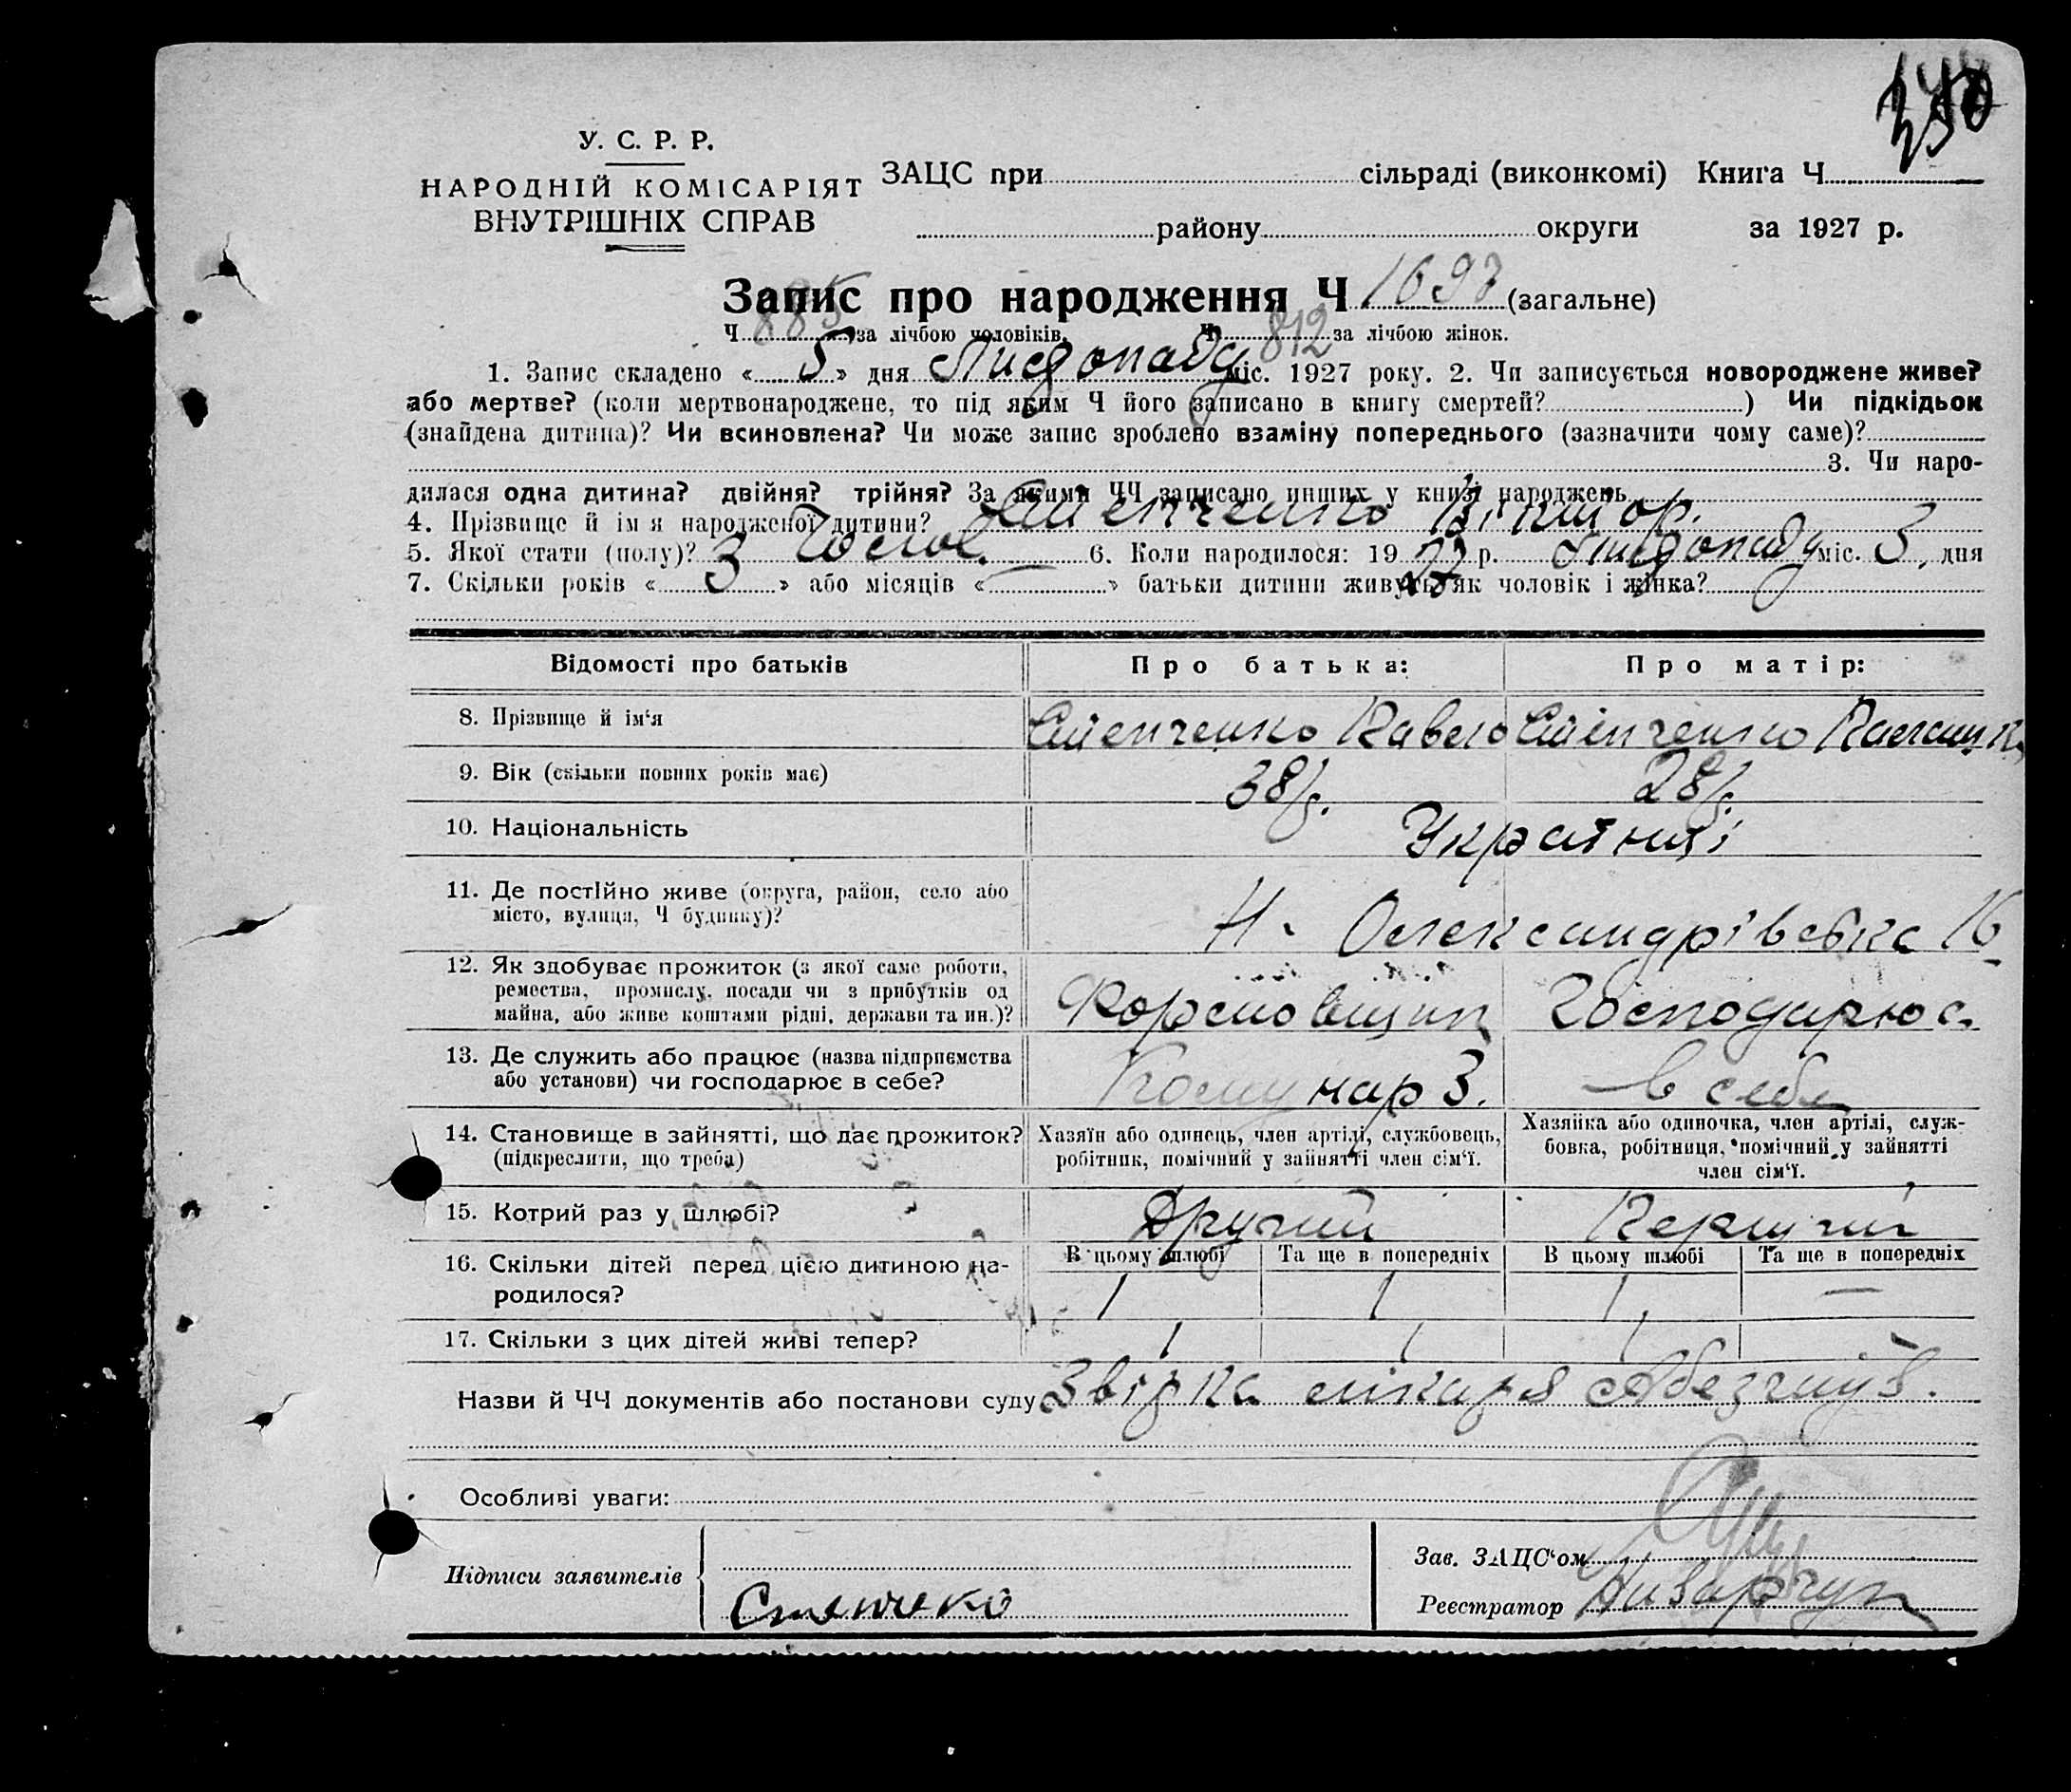 250
У. С. Р. Р.
НАРОДНІЙ КОМІСАРІЯТ
ВНУТРІШНІХ СПРАВ
ЗАЦС при сільраді (виконкомі) Книга Ч
району округи за 1927 р.
Запис про народження Ч 1697 (загальне)
Ч 885 за лічбою чоловіків. Ч 812 за лічбою жінок.
1. Запис складено « 5 » дня Листопаду міс. 1927 року. 2. Чи записується новороджене живе?
або мертве? (коли мертвонароджене, то під яким Ч його записано в книгу смертей? ) Чи підкідьок
(знайдена дитина)? Чи всиновлена? Чи може запис зроблено взаміну попереднього (зазначити чому саме)?
3. Чи наро-
дилася одна дитина? двійня? трійня? За якими ЧЧ записано инших у книзі народжень
4. Прізвище й ім я народженої дитини? Степченко Віктор.
5. Якої стати (полу)? Чолов. 6. Коли народилося: 1927 р. Листопаду міс. 3, дня
7. Скільки років « 3 » або місяців « — » батьки дитини живуть як чоловік і жінка?
Відомості про батьків
Про батька:
Про матір:
8. Прізвище й ім‘я
Степченко Павло
Степченко
9. Вік (скільки повних років має)
38 р.
28 р.
10. Національність
Українці
11. Де постІйно живе (округа, район, село або
місто, вулиця, Ч будинку)?
Н. Олександрівська 16
12. Як здобуває прожиток (з якої саме роботи,
ремества, промислу, посади чи з прибутків од
майна, або живе коштами рідні, держави та ин.)?
Формовщик
Господарює
13. Де служить або працює (назва підприємства
або установи) чи господарює в себе?
Комунар З.
в себе
14. Становище в зайнятті, що дає прожиток?
(підкреслити, що треба)
Хазяїн або одинець, член артілі, службовець,
робітник, помічний у зайнятті член сім‘ї.
Хазяйка або одиночка, член артілі, служ-
бовка, робітниця, помічний у зайнятті
член сім‘ї.
15. Котрий раз у шлюбі?
Другий
Перший
16. Скільки дітей перед цією дитиною на-
родилося?
В цьому шлюбі
Та ще в попередніх
В цьому шлюбі
Та ще в попередніх
1 1 1 —
17. Скільки з цих дітей живі тепер?
1 1 1 -
Назви й ЧЧ документів або постанови суду лікаря
Особливі уваги:
Підписи заявителів
Стенчеко
Зав. ЗАЦС‘ом
Реєстратор Назарчук